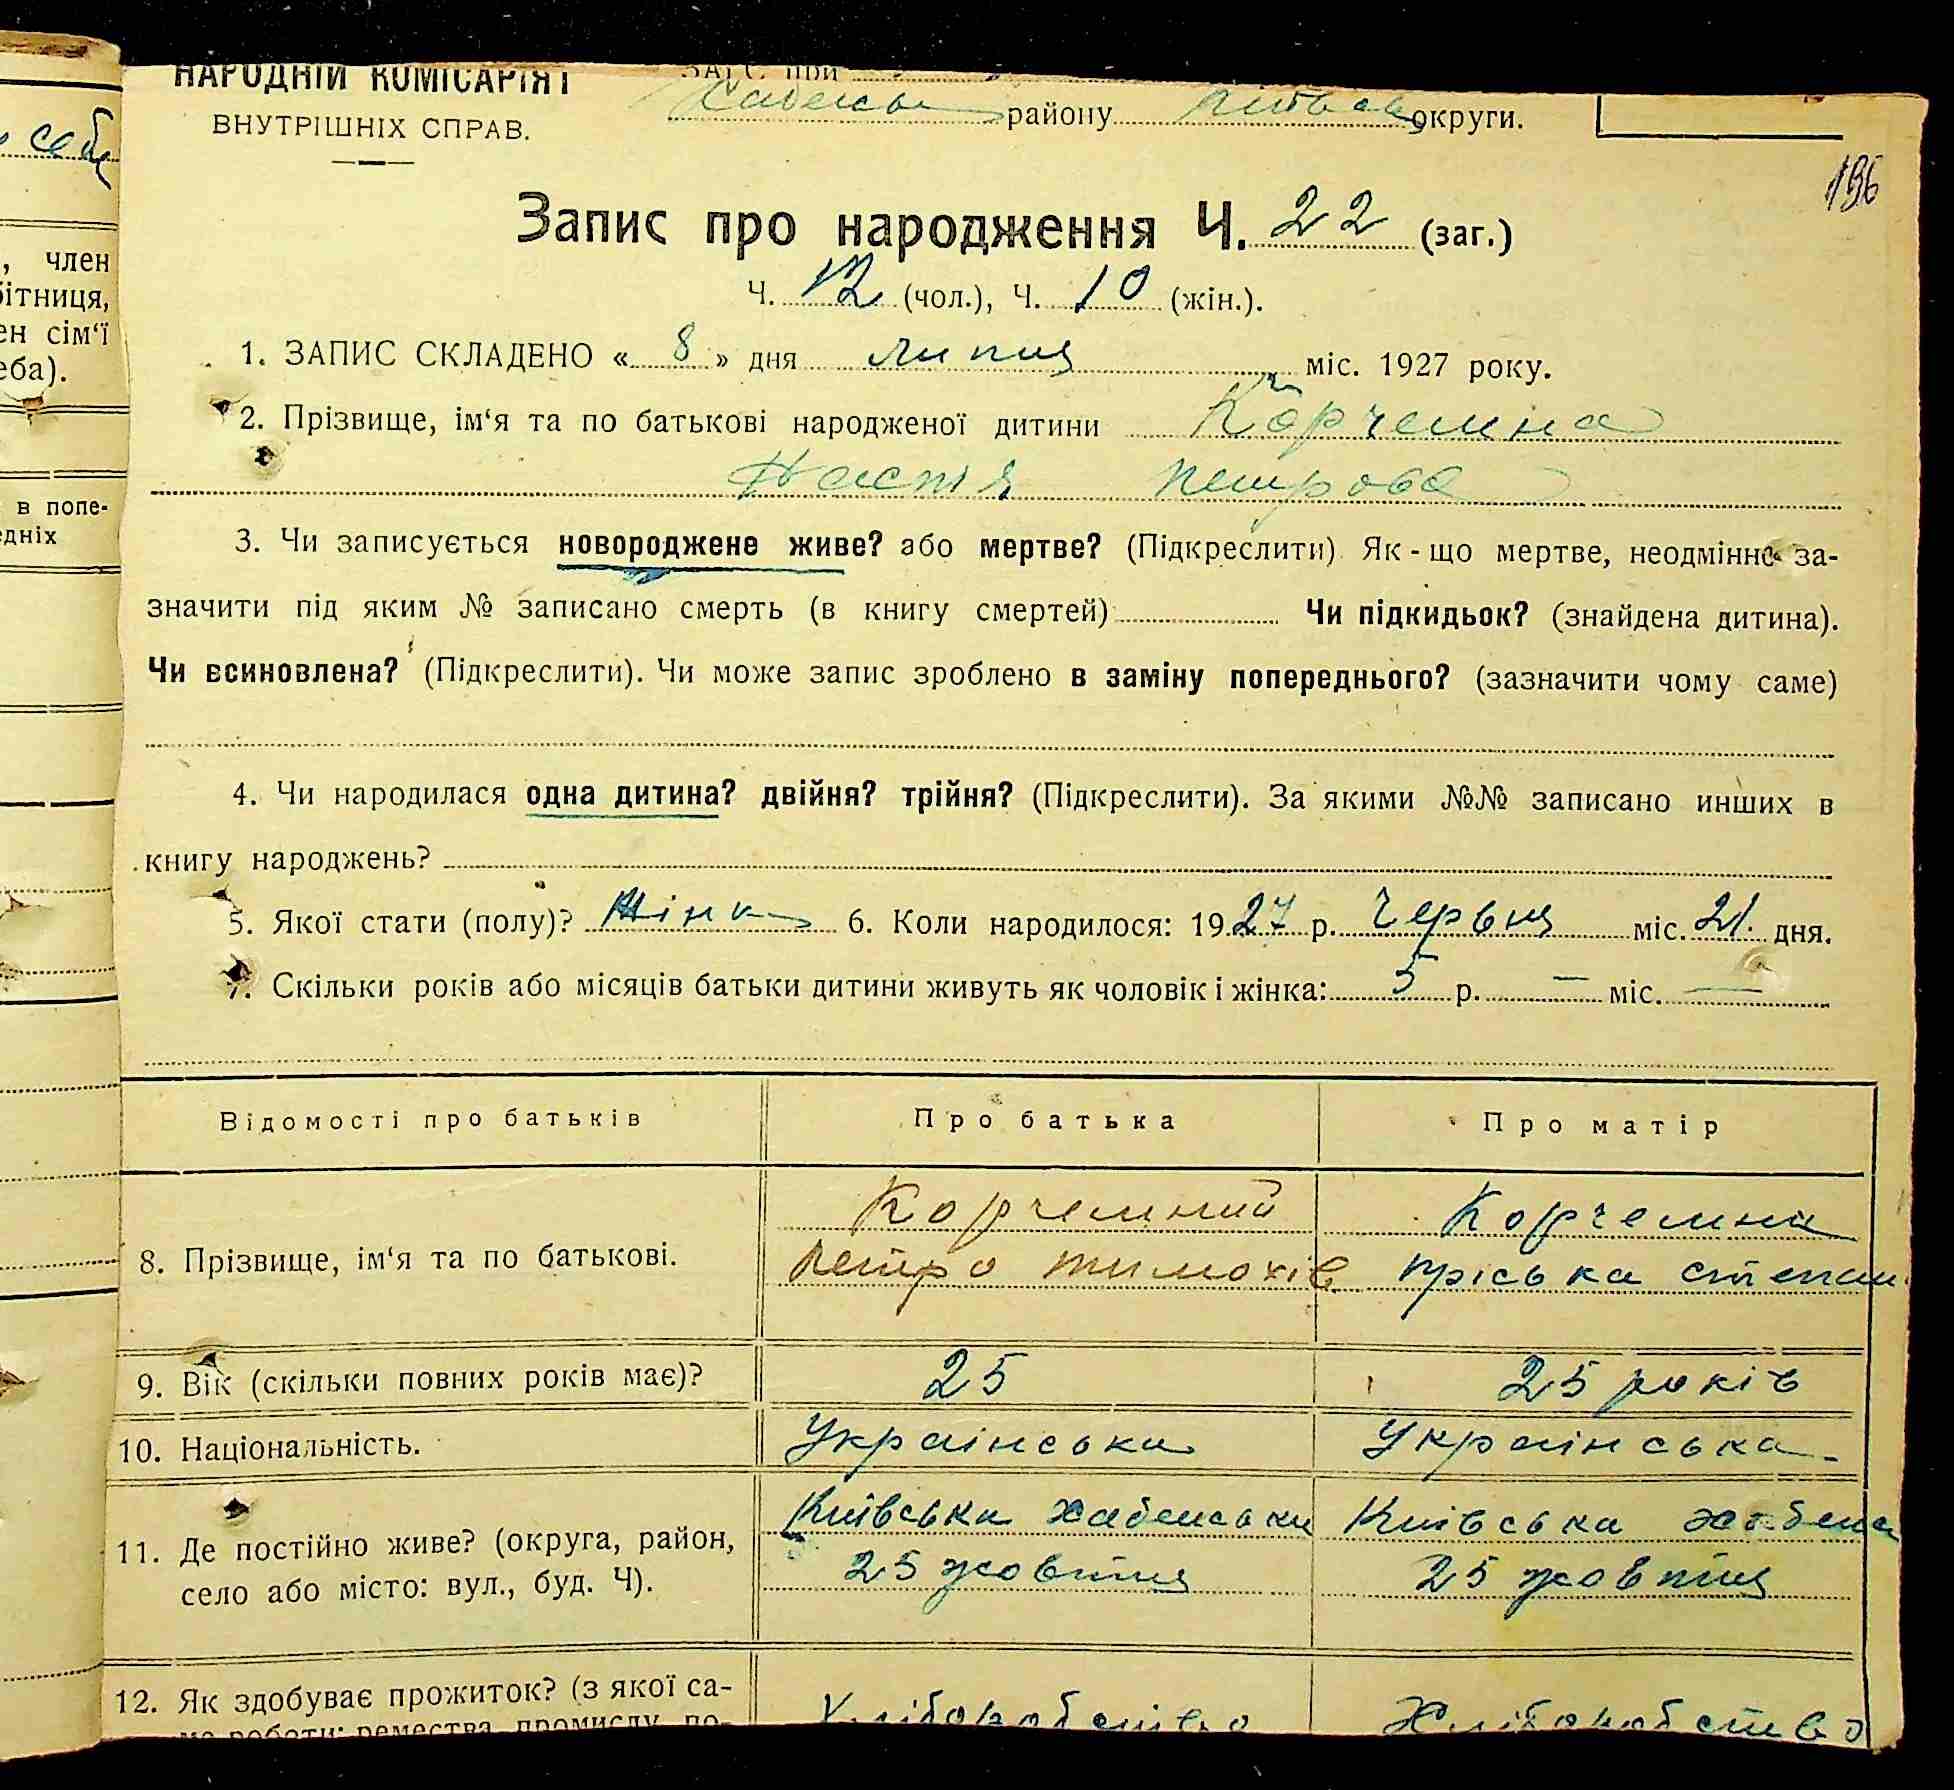 с себе
, член
бітниця,
ен сім‘ї
еба).
в попе-
едніх
НАРОДНІЙ КОМІСАРІЯТ
ВНУТРІШНІХ СПРАВ.
ЗАГС при
району округи.
196
Запис про народження Ч. 22 (заг.)
Ч. 12 (чол.), Ч. 10 (жін.).
1. ЗАПИС СКЛАДЕНО « 8 » дня липця міс. 1927 року.
2. Прізвище, ім‘я та по батькові народженої дитини Корчемна
Настя петрова
3. Чи записується новороджене живе? або мертве? (Підкреслити). Як-що мертве, неодмінно за-
значити під яким № записано смерть (в книгу смертей) Чи підкидьок? (знайдена дитина).
Чи всиновлена? (Підкреслити). Чи може запис зроблено в заміну попереднього? (зазначити чому саме)
4. Чи народилася одна дитина? двійня? трійня? (Підкреслити). За якими №№ записано инших в
книгу народжень?
5. Якої стати (полу)? жінк 6. Коли народилося: 1927 р. червця міс. 21. дня.
7. Скільки років або місяців батьки дитини живуть як чоловік і жінка: 5 р. — міс. —
Відомості про батьків Про батька Про матір
8. Прізвище, ім‘я та по батькові.
Корчемний
петро тимохів
Корчемна
пріська степан
9. Вік (скільки повних років має)? 25 25 років
10. Національність. Українська Українська
11. Де постійно живе? (округа, район,
село або місто: вул., буд. Ч).
Київська хабенська
25 жовтня
Київська хабенс
25 жовтня
12. Як здобуває прожиток? (з якої са-
ме роботи: ремества, промислу, по-
Хліборобство
Хліборобство